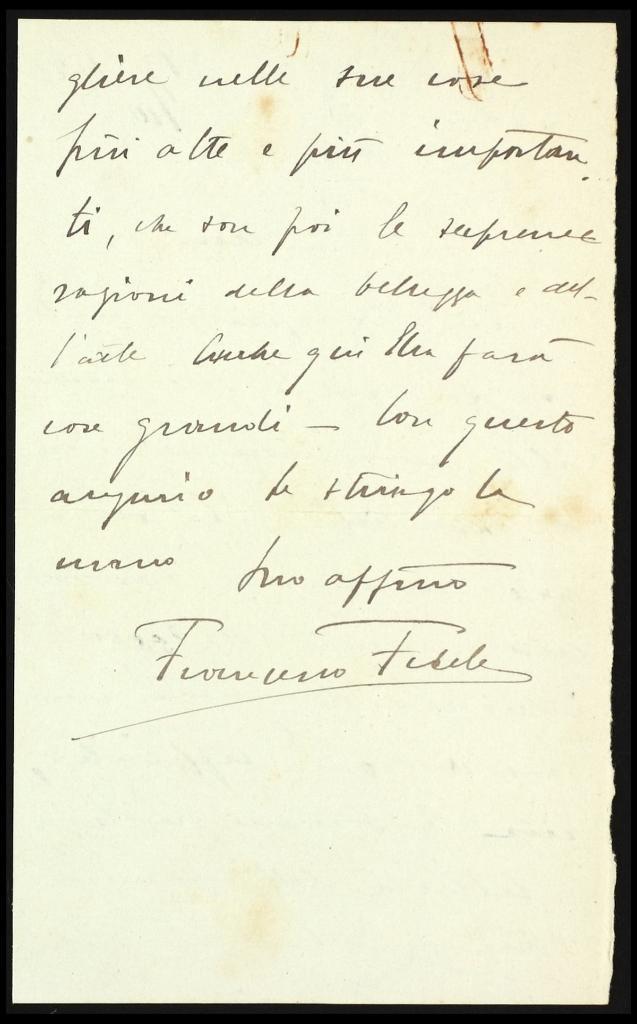 gliere nelle sue cose
più alte e più importan-
ti, che son poi le supreme
ragioni della bellezza e del-
l'arte Anche qui Ella farà
cose grandi — Con questo
augurio le stringo la
mano Suo affmo
Francesco Fedele